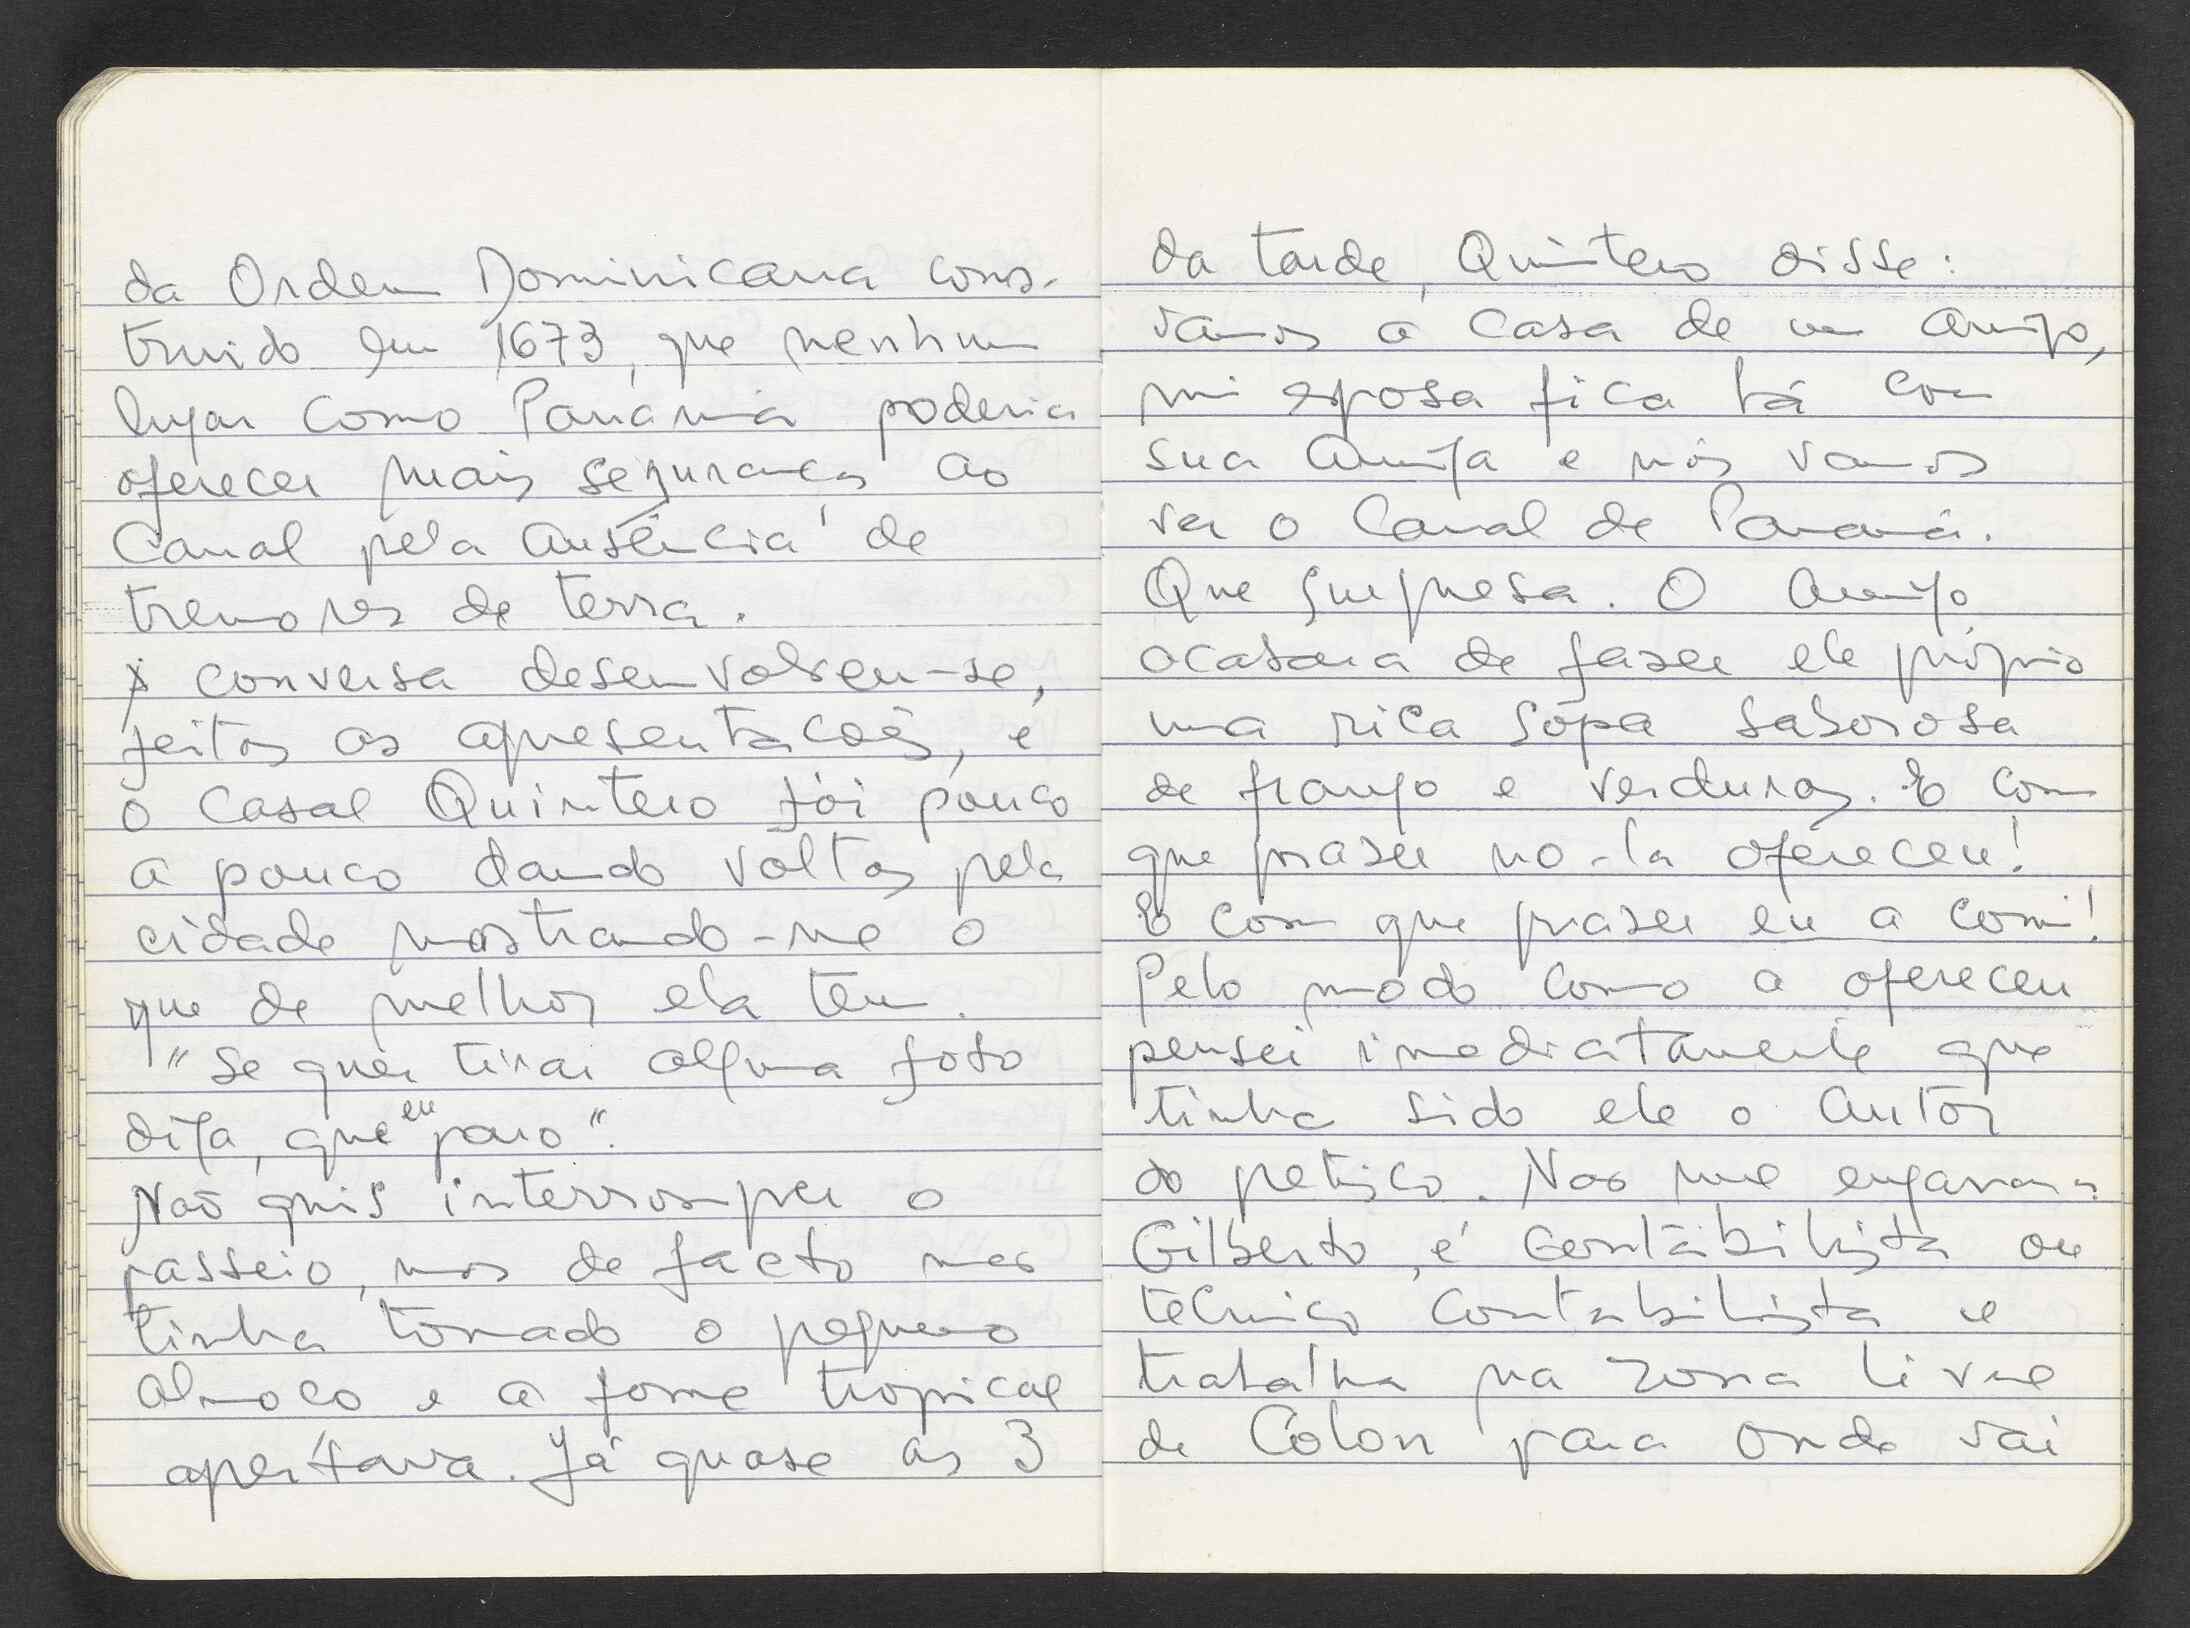 da Ordem Dominicana cons-
truido em 1673, que nenhum
lugar como Panamá poderia
oferecer mais segurança ao
Canal pela ausência de
tremores de terra.
A conversa desenvolveu-se,
feitas as apresentações, e
o Casal Quintero foi pouco
a pouco dando voltas pela
cidade mostrando-me o
que de melhor ela tem.
"Se quer tirar alguma foto
diga, que eu paro".
Não quis interromper o
passeio, mas de facto mas
tinha tomado o pequeno
almoço e a fome tropical
apertava. Já quase as 3
da tarde, Quintero disse:
vamos a casa de um amigo,
mi esposa fica lá com
sua amiga e nós vamos
ver o Canal de Panamá.
Que surpresa. O amigo
acabara de fazer ele próprio
uma rica sopa saborosa
de frango e verduras. E com
que prazer no-la ofereceu!
E com que prazer eu a comi!
Pelo modo como a ofereceu
pensei imediatamente que
tinha sido ele o autor
do petisco. Nao me enganara
Gilberto, é contabilista ou
técnico contabilista e
trabalha na zona livre
de Colon para onde vai